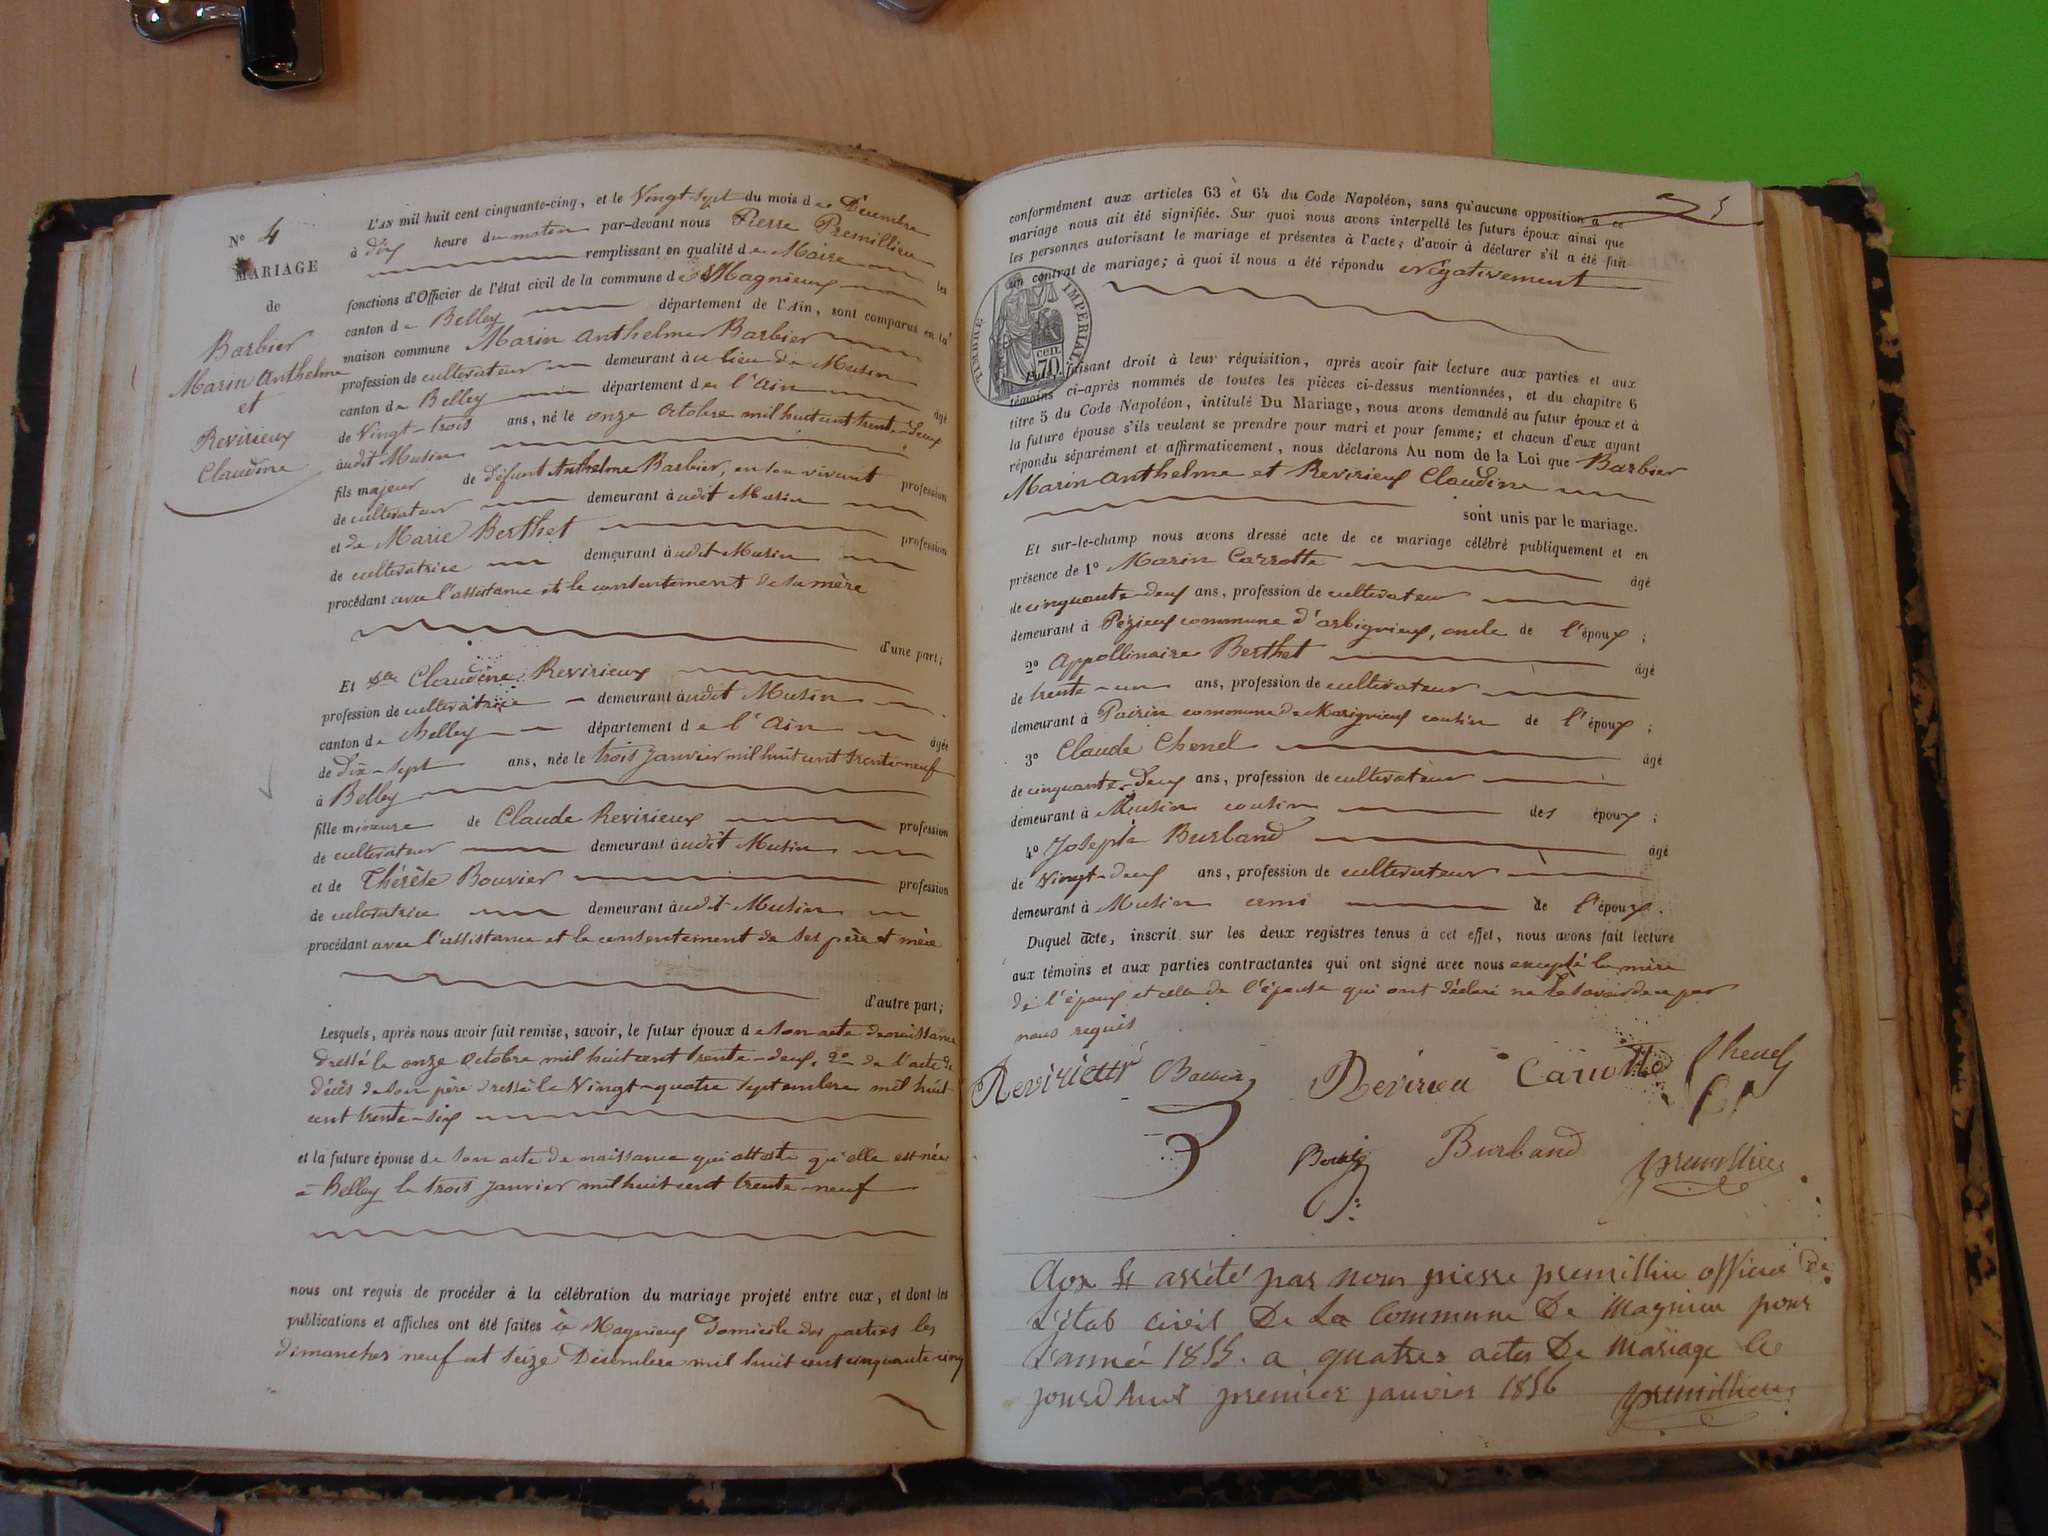 N° 4
MARIAGE
de
Barbier
Marin Anthelme
et
Revirieux
Claudine
L'AN mil huit cent cinquante-cinq, et le Vingt-sept du mois de Décembre
à dix heure du matin par-devant nous Pierre Premillieu
remplissant en qualité de Maire les
fonctions d'Officier de l'état civil de la commune de Magnieux
canton de Belley département de l'Ain, sont comparus en la
maison commune Marin Anthelme Barbier
profession de cultivateur demeurant à u lieu de Musin
canton de Belley département de l'Ain âgé
de Vingt-trois ans, né le onze Octobre mil huit cent trente-deux
audit Musin
fils majeur de défunt Anthelme Barbier, en son vivant profession
de cultivateur demeurant à udit Musin
et de Marie Berthet profession
de cultivatrice demeurant à udit Musin
procédant avec l'assistance et le consentement de sa mère
d'une part;
Et Claudine Revirieux
profession de cultivatrice demeurant à udit Musin
canton de Belley département de l'Ain âgée
de Dix-sept ans, née le trois Janvier mil huit cent trente-neuf
à Belley
fille mineure de Claude Revirieux profession
de cultivateur demeurant à udit Musin
et de Thérèse Bouvier profession
de cultivatrice demeurant à udit Musin
procédant avec l'assistance et le consentement de ses père et mère
d'autre part;
Lesquels, après nous avoir fait remise, savoir, le futur époux de son acte de naissance
dressé le onze Octobre mil huit cent trente-deux, 2° de l'acte de
décès de son père dressé le Vingt-quatre septembre mil huit
cent trente-six
et la future épouse de son acte de naissance qui atteste qu'elle est née
à Belley le trois Janvier mil huit cent trente-neuf
nous ont requis de procéder à la célébration du mariage projeté entre eux, et dont les
publications et affiches ont été faites à Magnieux domicile des parties les
dimanches neuf et seize Décembre mil huit cent cinquante cinq
conformément aux articles 63 et 64 du Code Napoléon, sans qu'aucune opposition à ce
mariage nous ait été signifiée. Sur quoi nous avons interpellé les futurs époux ainsi que
les personnes autorisant le mariage et présentes à l'acte; d'avoir à déclarer s'il a été fait
un contrat de mariage; à quoi il nous a été répondu Négativement
TIMBRE IMPÉRIAL
70 cen.
faisant droit à leur réquisition, après avoir fait lecture aux parties et aux
témoins ci-après nommés de toutes les pièces ci-dessus mentionnées, et du chapitre 6
titre 5 du Code Napoléon, intitulé Du Mariage, nous avons demandé au futur époux et à
la future épouse s'ils veulent se prendre pour mari et pour femme; et chacun d'eux ayant
répondu séparément et affirmativement, nous déclarons Au nom de la Loi que Barbier
Marin Anthelme et Revirieux Claudine
sont unis par le mariage.
Et sur-le-champ nous avons dressé acte de ce mariage célébré publiquement et en
présence de 1° Marin Carrotte âgé
de cinquante-deux ans, profession de cultivateur
demeurant à Pézieux commune d'arbignieux, oncle de l'époux;
2° Appollinaire Berthet âgé
de trente-un ans, profession de cultivateur
demeurant à Poirin commune de Marignieux cousin de l'époux;
3° Claude Chenel âgé
de cinquante-deux ans, profession de cultivateur
demeurant à Musin cousin des époux;
4° Joseph Burband âgé
de Vingt-deux ans, profession de cultivateur
demeurant à Musin ami de l'époux.
Duquel acte, inscrit sur les deux registres tenus à cet effet, nous avons fait lecture
aux témoins et aux parties contractantes qui ont signé avec nous excepté la mère
de l'époux et celle de l'épouse qui ont déclaré ne le savoir de ce par
nous requis
Revirieux Revirieu Chenel
Burband premillieu
arrété par nous pierre premillieu officier de
L'état civil De La Commune De Magnieu pour
L'année 1855. a quatres actes De Mariage le
jourd'hui premier janvier 1856 premillieu